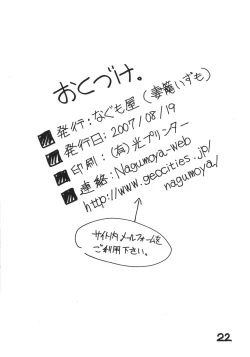 おくづけ。
発行：なぐも屋（妻籠いずも）
発行日：2007/08/19
印刷：(有)光プリンター
連絡：Nagumoya-web
http://www.geocities.jp/
nagumoya/
サイト内メールフォームを
ご利用下さい。
22